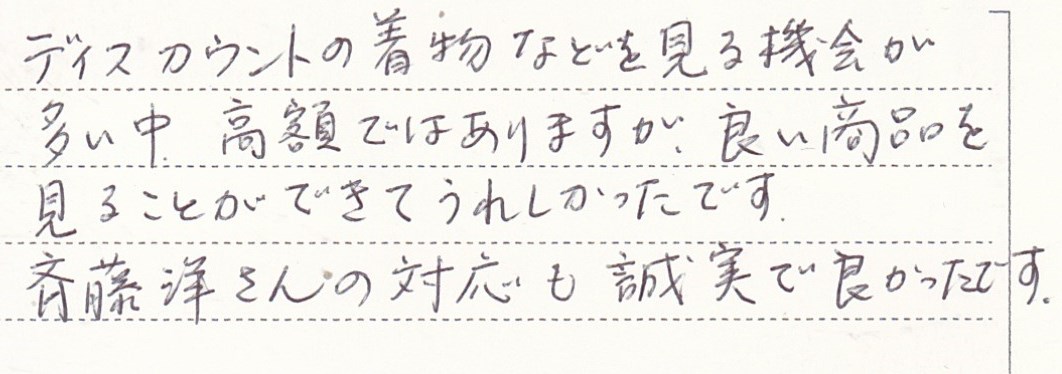 ディスカウントの着物などを見る機会が
多い中、高額ではありますが、良い商品を
見ることができてうれしかったです。
斉藤洋さんの対応も誠実で良かったです。